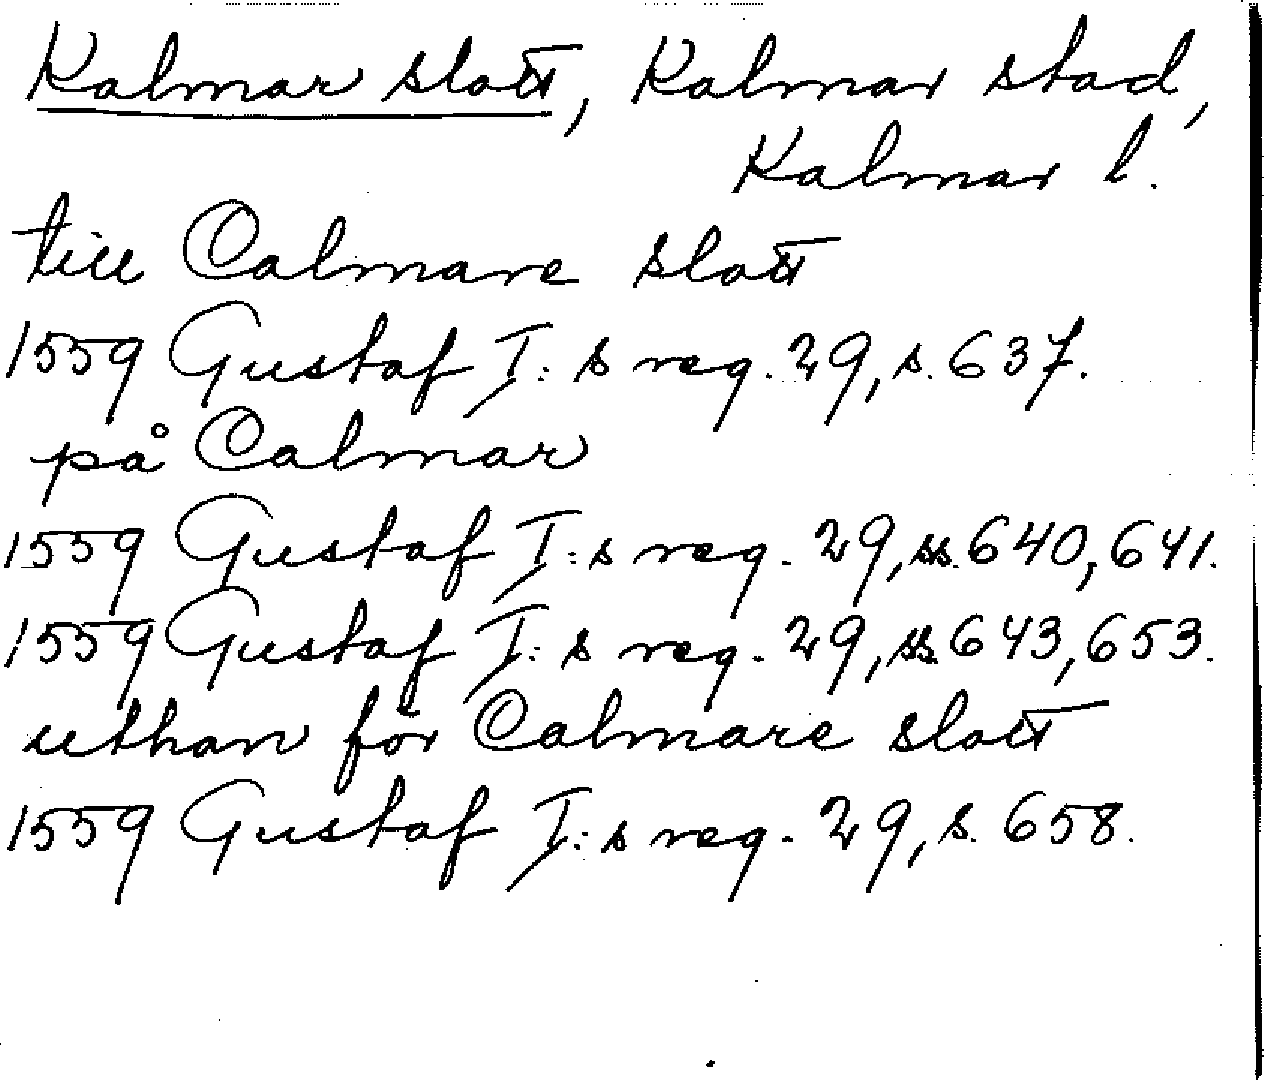 Kalmar slott, Kalmar stad,
Kalmar l.
till Calmare slott
1559 Gustaf I:s reg. 29, s. 637.
på Calmar
1559 Gustaf I:s reg. 29, ss. 640, 641.
1559 Gustaf I:s reg. 29, ss. 643, 653.
uthan för Calmare slott
1559 Gustaf I:s reg. 29, s. 658.